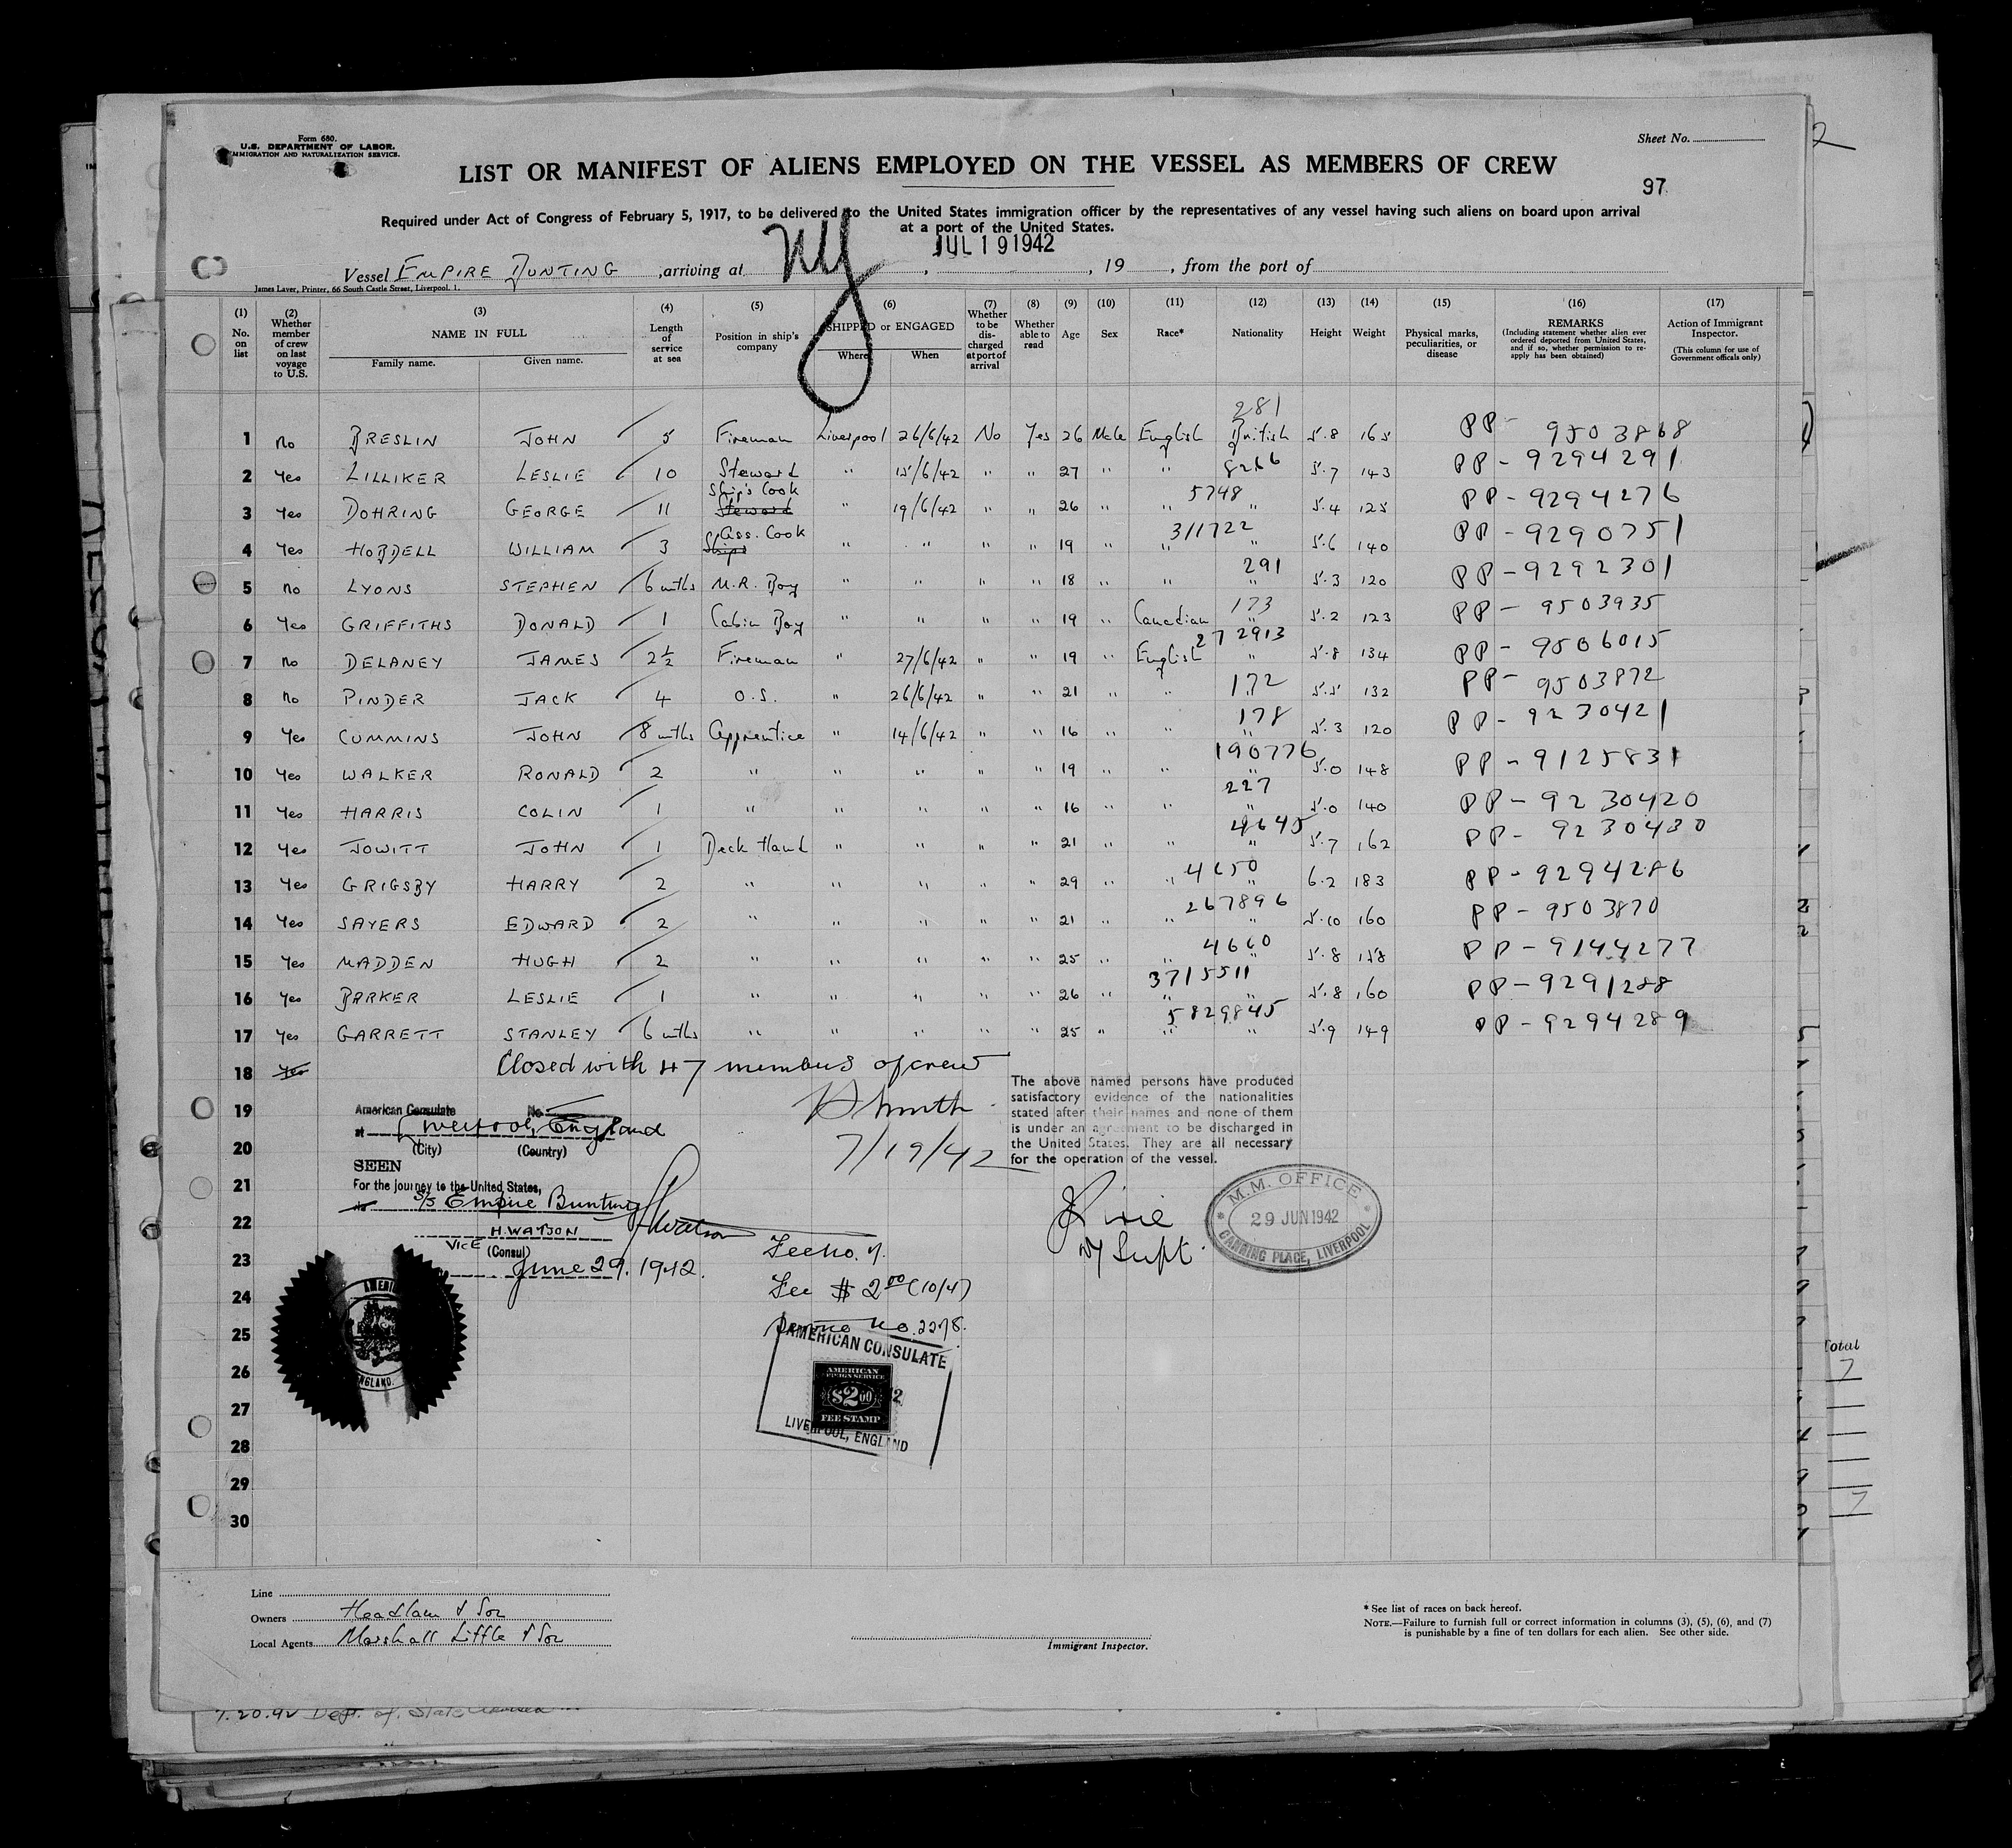 Form 680.
U.S. DEPARTMENT OF LABOR.
IMMIGRATION AND NATURALIZATION SERVICE.
Sheet No.
LIST OR MANIFEST OF ALIENS EMPLOYED ON THE VESSEL AS MEMBERS OF CREW
97
Required under Act of Congress of February 5, 1917, to be delivered to the United States immigration officer by the representatives of any vessel having such aliens on board upon arrival
at a port of the United States.
JUL 19 1942
Vessel EMPIRE BUNTING, arriving at NY, 19, from the port of
James Laver, Printer, 66 South Castle Street, Liverpool. 1.
(1) No. on list
(2) Whether member of crew on last voyage to U.S.
(3) NAME IN FULL Family name. Given name.
(4) Length of service at sea
(5) Position in ship's company
(6) SHIPPED or ENGAGED Where When
(7) Whether to be discharged at port of arrival
(8) Whether able to read
(9) Age
(10) Sex
(11) Race*
(12) Nationality
(13) Height
(14) Weight
(15) Physical marks, peculiarities, or disease
(16) REMARKS (Including statement whether alien ever ordered deported from United States, and if so, whether permission to re-apply has been obtained)
(17) Action of Immigrant Inspector. (This column for use of Government officals only)
281
1 No BRESLIN JOHN 5 Fireman Liverpool 26/6/42 No Yes 26 Male English British 5.8 165 PP - 9503868
2 Yes LILLIKER LESLIE 10 Steward " 15/6/42 " " 27 " " 8266 5.7 143 PP - 9294291
3 Yes DOHRING GEORGE 11 Ship's Cook Steward " 19/6/42 " " 26 " 5748 " " 5.4 125 PP - 9294276
4 Yes HOBDELL WILLIAM 3 Ass. Cook Ships " " " " 19 " 311722 " " 5.6 140 PP - 9290751
5 No LYONS STEPHEN 6 mths M.R. Boy " " " " 18 " " 291 " 5.3 120 PP - 9292301
6 Yes GRIFFITHS DONALD 1 Cabin Boy " " " " 19 " Canadian 173 " 5.2 123 PP - 9503935
7 No DELANEY JAMES 2½ Fireman " 27/6/42 " " 19 " English 272913 " 5.8 134 PP - 9506015
8 No PINDER JACK 4 O.S. " 26/6/42 " " 21 " " 172 " 5.5 132 PP - 9503872
9 Yes CUMMINS JOHN 8 mths Apprentice " 14/6/42 " " 16 " " 178 " 5.3 120 PP - 9230421
10 Yes WALKER RONALD 2 " " " " " 19 " " 190776 " 5.0 148 PP - 9125831
11 Yes HARRIS COLIN 1 " " " " " 16 " " 227 " 5.0 140 PP - 9230420
12 Yes JOWITT JOHN 1 Deck Hand " " " " 21 " " 4645 " 5.7 162 PP - 9230430
13 Yes GRIGSBY HARRY 2 " " " " " 29 " 4650 " " 6.2 183 PP - 9294286
14 Yes SAYERS EDWARD 2 " " " " " 21 " 267896 " " 5.10 160 PP - 9503870
15 Yes MADDEN HUGH 2 " " " " " 25 " 4660 " " 5.8 158 PP - 9144277
16 Yes BARKER LESLIE 1 " " " " " 26 " 3715511 " " 5.8 160 PP - 9291288
17 Yes GARRETT STANLEY 6 mths " " " " " 25 " 5829845 " " 5.9 149 PP - 9294289
18 Yes Closed with 47 members of crew
19
20
21
22
23
24
25
26
27
28
29
30
7/19/42
The above named persons have produced
satisfactory evidence of the nationalities
stated after their names and none of them
is under an agreement to be discharged in
the United States. They are all necessary
for the operation of the vessel.
American Consulate No.
at Liverpool, England
(City) (Country)
SEEN
For the journey to the United States,
S/S Empire Bunting
H. WATSON HWatson
VICE (Consul)
June 29. 1942.
Supt.
M.M. OFFICE
29 JUN 1942
CANNING PLACE, LIVERPOOL
Fee $2.00 (10/4)
No. 2278.
AMERICAN CONSULATE
AMERICAN
FOREIGN SERVICE
$2.00
FEE STAMP
LIVERPOOL, ENGLAND
Line
Owners Headlam & Son
Local Agents Marshall Little & Son
Immigrant Inspector.
* See list of races on back hereof.
NOTE.—Failure to furnish full or correct information in columns (3), (5), (6), and (7)
is punishable by a fine of ten dollars for each alien. See other side.
7.20.42 Dept. of State
Total
7
7
2